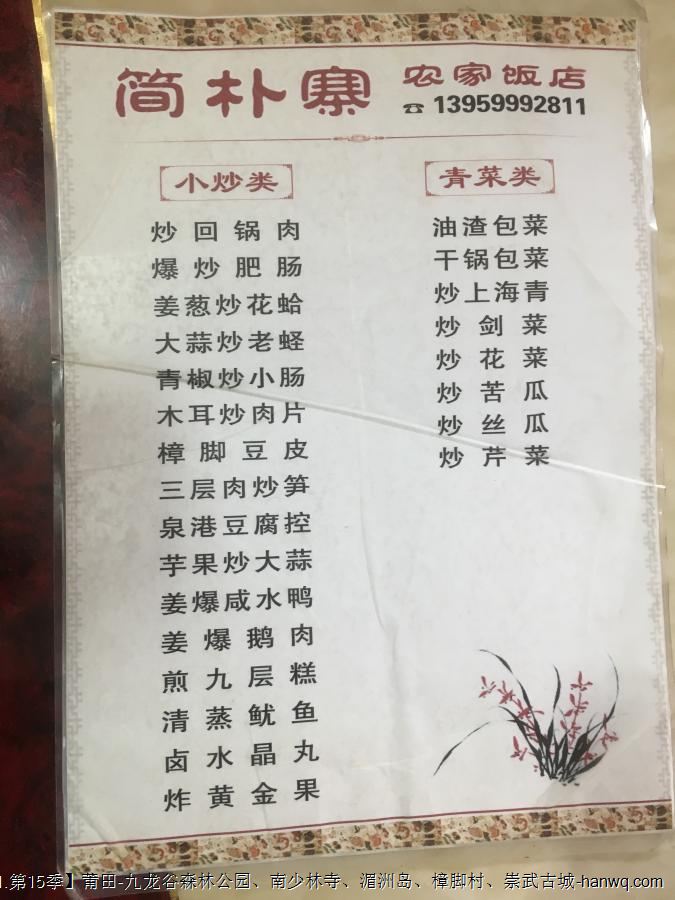 简朴寨 农家饭店
☎ 13959992811
小炒类
炒回锅肉
爆炒肥肠
姜葱炒花蛤
大蒜炒老蛏
青椒炒小肠
木耳炒肉片
樟脚豆皮
三层肉炒笋
泉港豆腐控
芋果炒大蒜
姜爆咸水鸭
姜爆鹅肉
煎九层糕
清蒸鱿鱼
卤水晶丸
炸黄金果
青菜类
油渣包菜
干锅包菜
炒上海青
炒剑菜
炒花菜
炒苦瓜
炒丝瓜
炒芹菜
.第15季】莆田-九龙谷森林公园、南少林寺、湄洲岛、樟脚村、崇武古城-hanwq.com